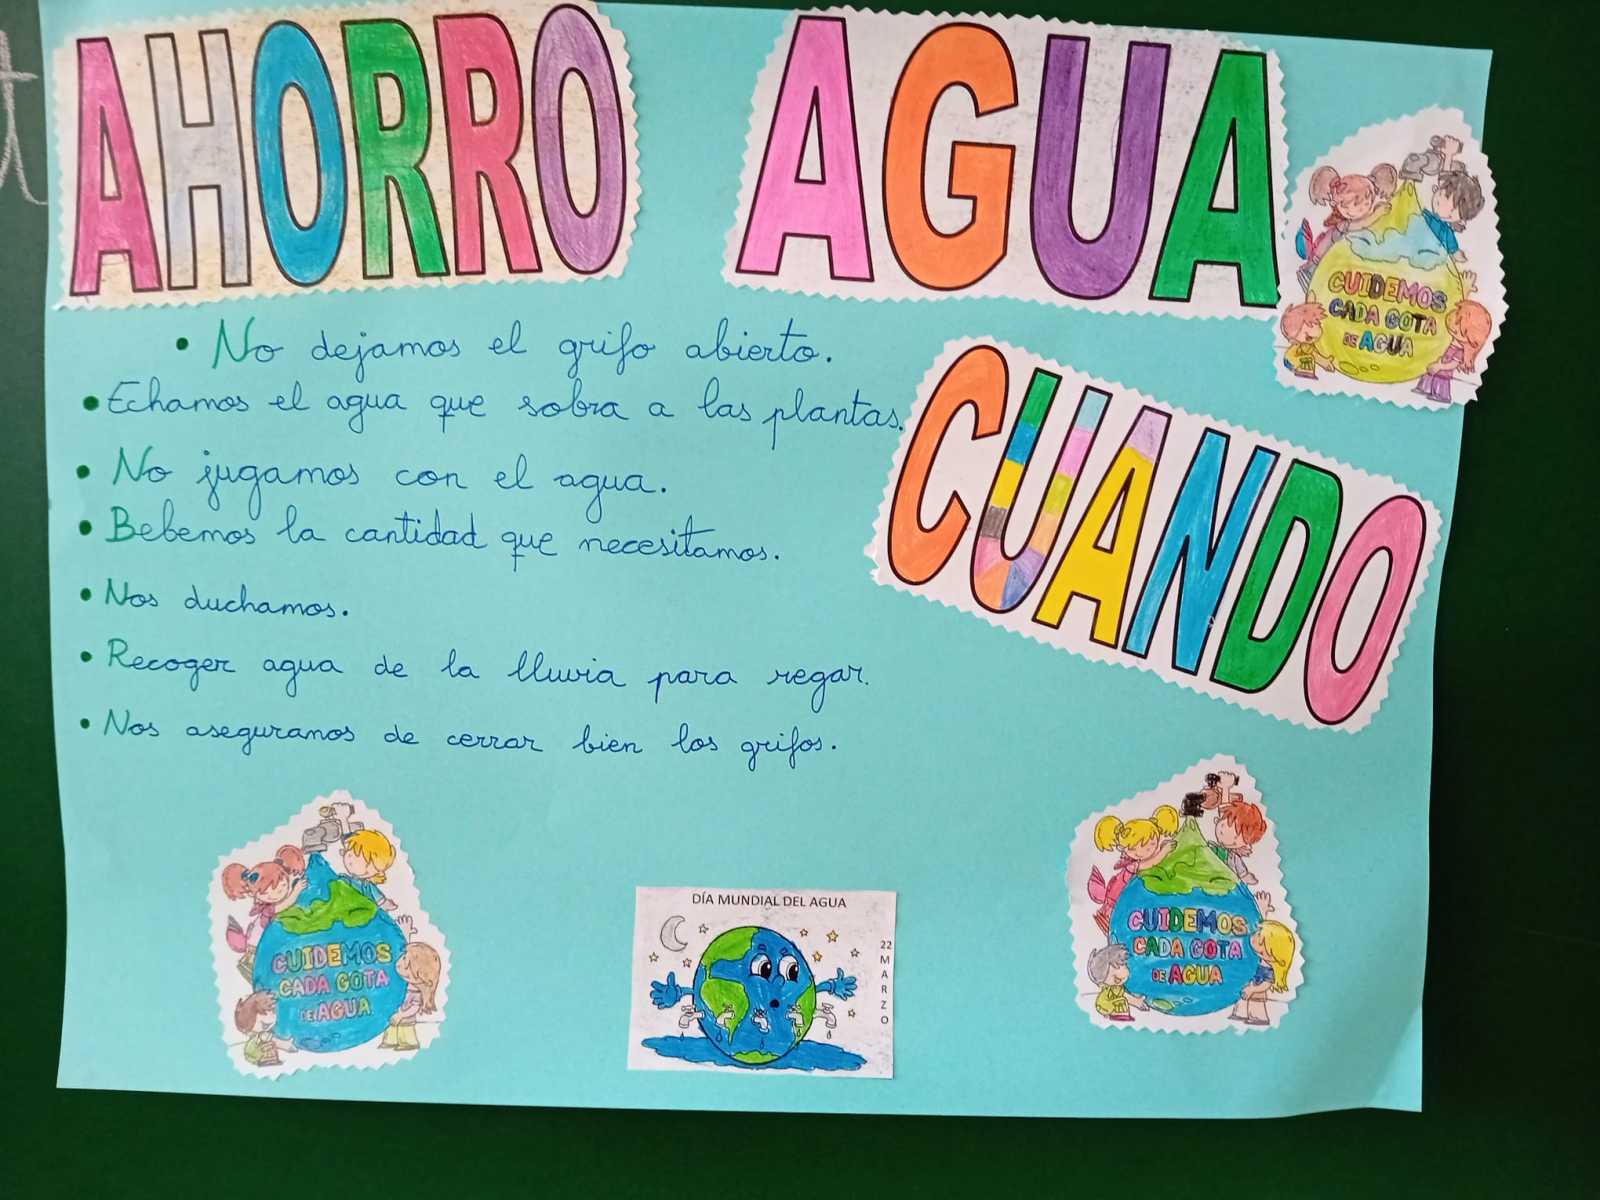 AHORRO AGUA
CUANDO
• No dejamos el grifo abierto.
• Echamos el agua que sobra a las plantas.
• No jugamos con el agua.
• Bebemos la cantidad que necesitamos.
• Nos duchamos.
• Recoger agua de la lluvia para regar.
• Nos aseguramos de cerrar bien los grifos.
CUIDEMOS
CADA GOTA
DE AGUA
CUIDEMOS
CADA GOTA
DE AGUA
DÍA MUNDIAL DEL AGUA
22 MARZO
CUIDEMOS
CADA GOTA
DE AGUA